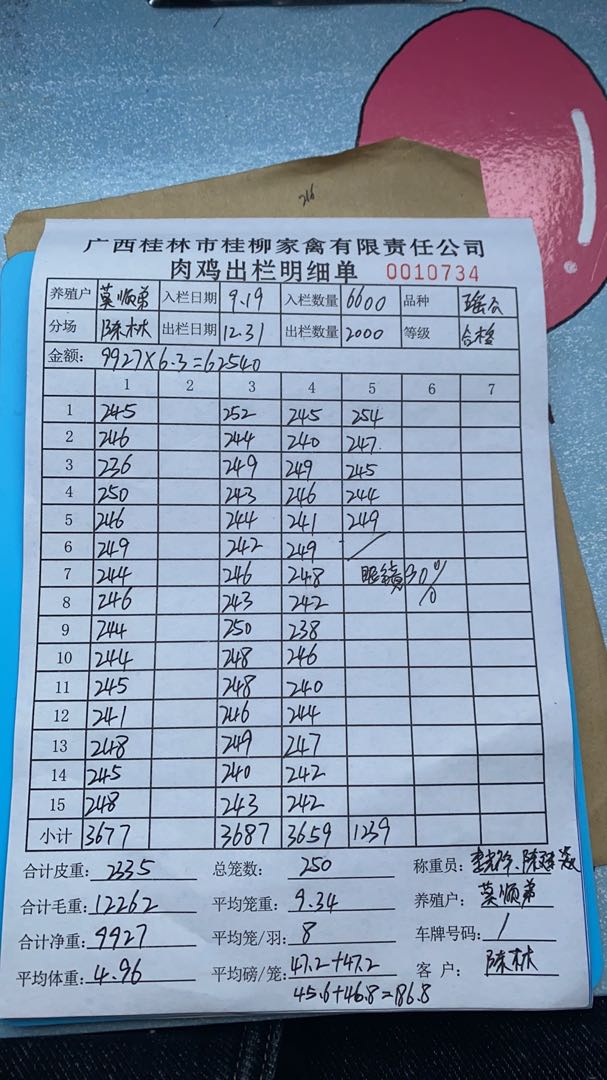 216
广西桂林市桂柳家禽有限责任公司
肉鸡出栏明细单 0010734
养殖户 莫顺弟 入栏日期 9.19 入栏数量 6600 品种 瑶公
分场 陈林 出栏日期 12.31 出栏数量 2000 等级 合格
金额: 9927×6.3=62540
1 2 3 4 5 6 7
1 245 252 245 254
2 246 244 240 247
3 236 249 249 245
4 250 243 246 244
5 246 244 241 249
6 249 242 249 /
7 244 246 248 眼镜30%
8 246 243 242
9 244 250 238
10 244 248 246
11 245 248 240
12 241 246 244
13 248 249 247
14 245 240 242
15 248 243 242
小计 3677 3687 3659 1239
合计皮重: 2335 总笼数: 250 称重员:
合计毛重: 12262 平均笼重: 9.34 养殖户: 莫顺弟
合计净重: 9927 平均笼/羽: 8 车牌号码: 1
平均体重: 4.96 平均磅/笼: 47.2+47.2 客户: 陈林
45.6+46.8=186.8